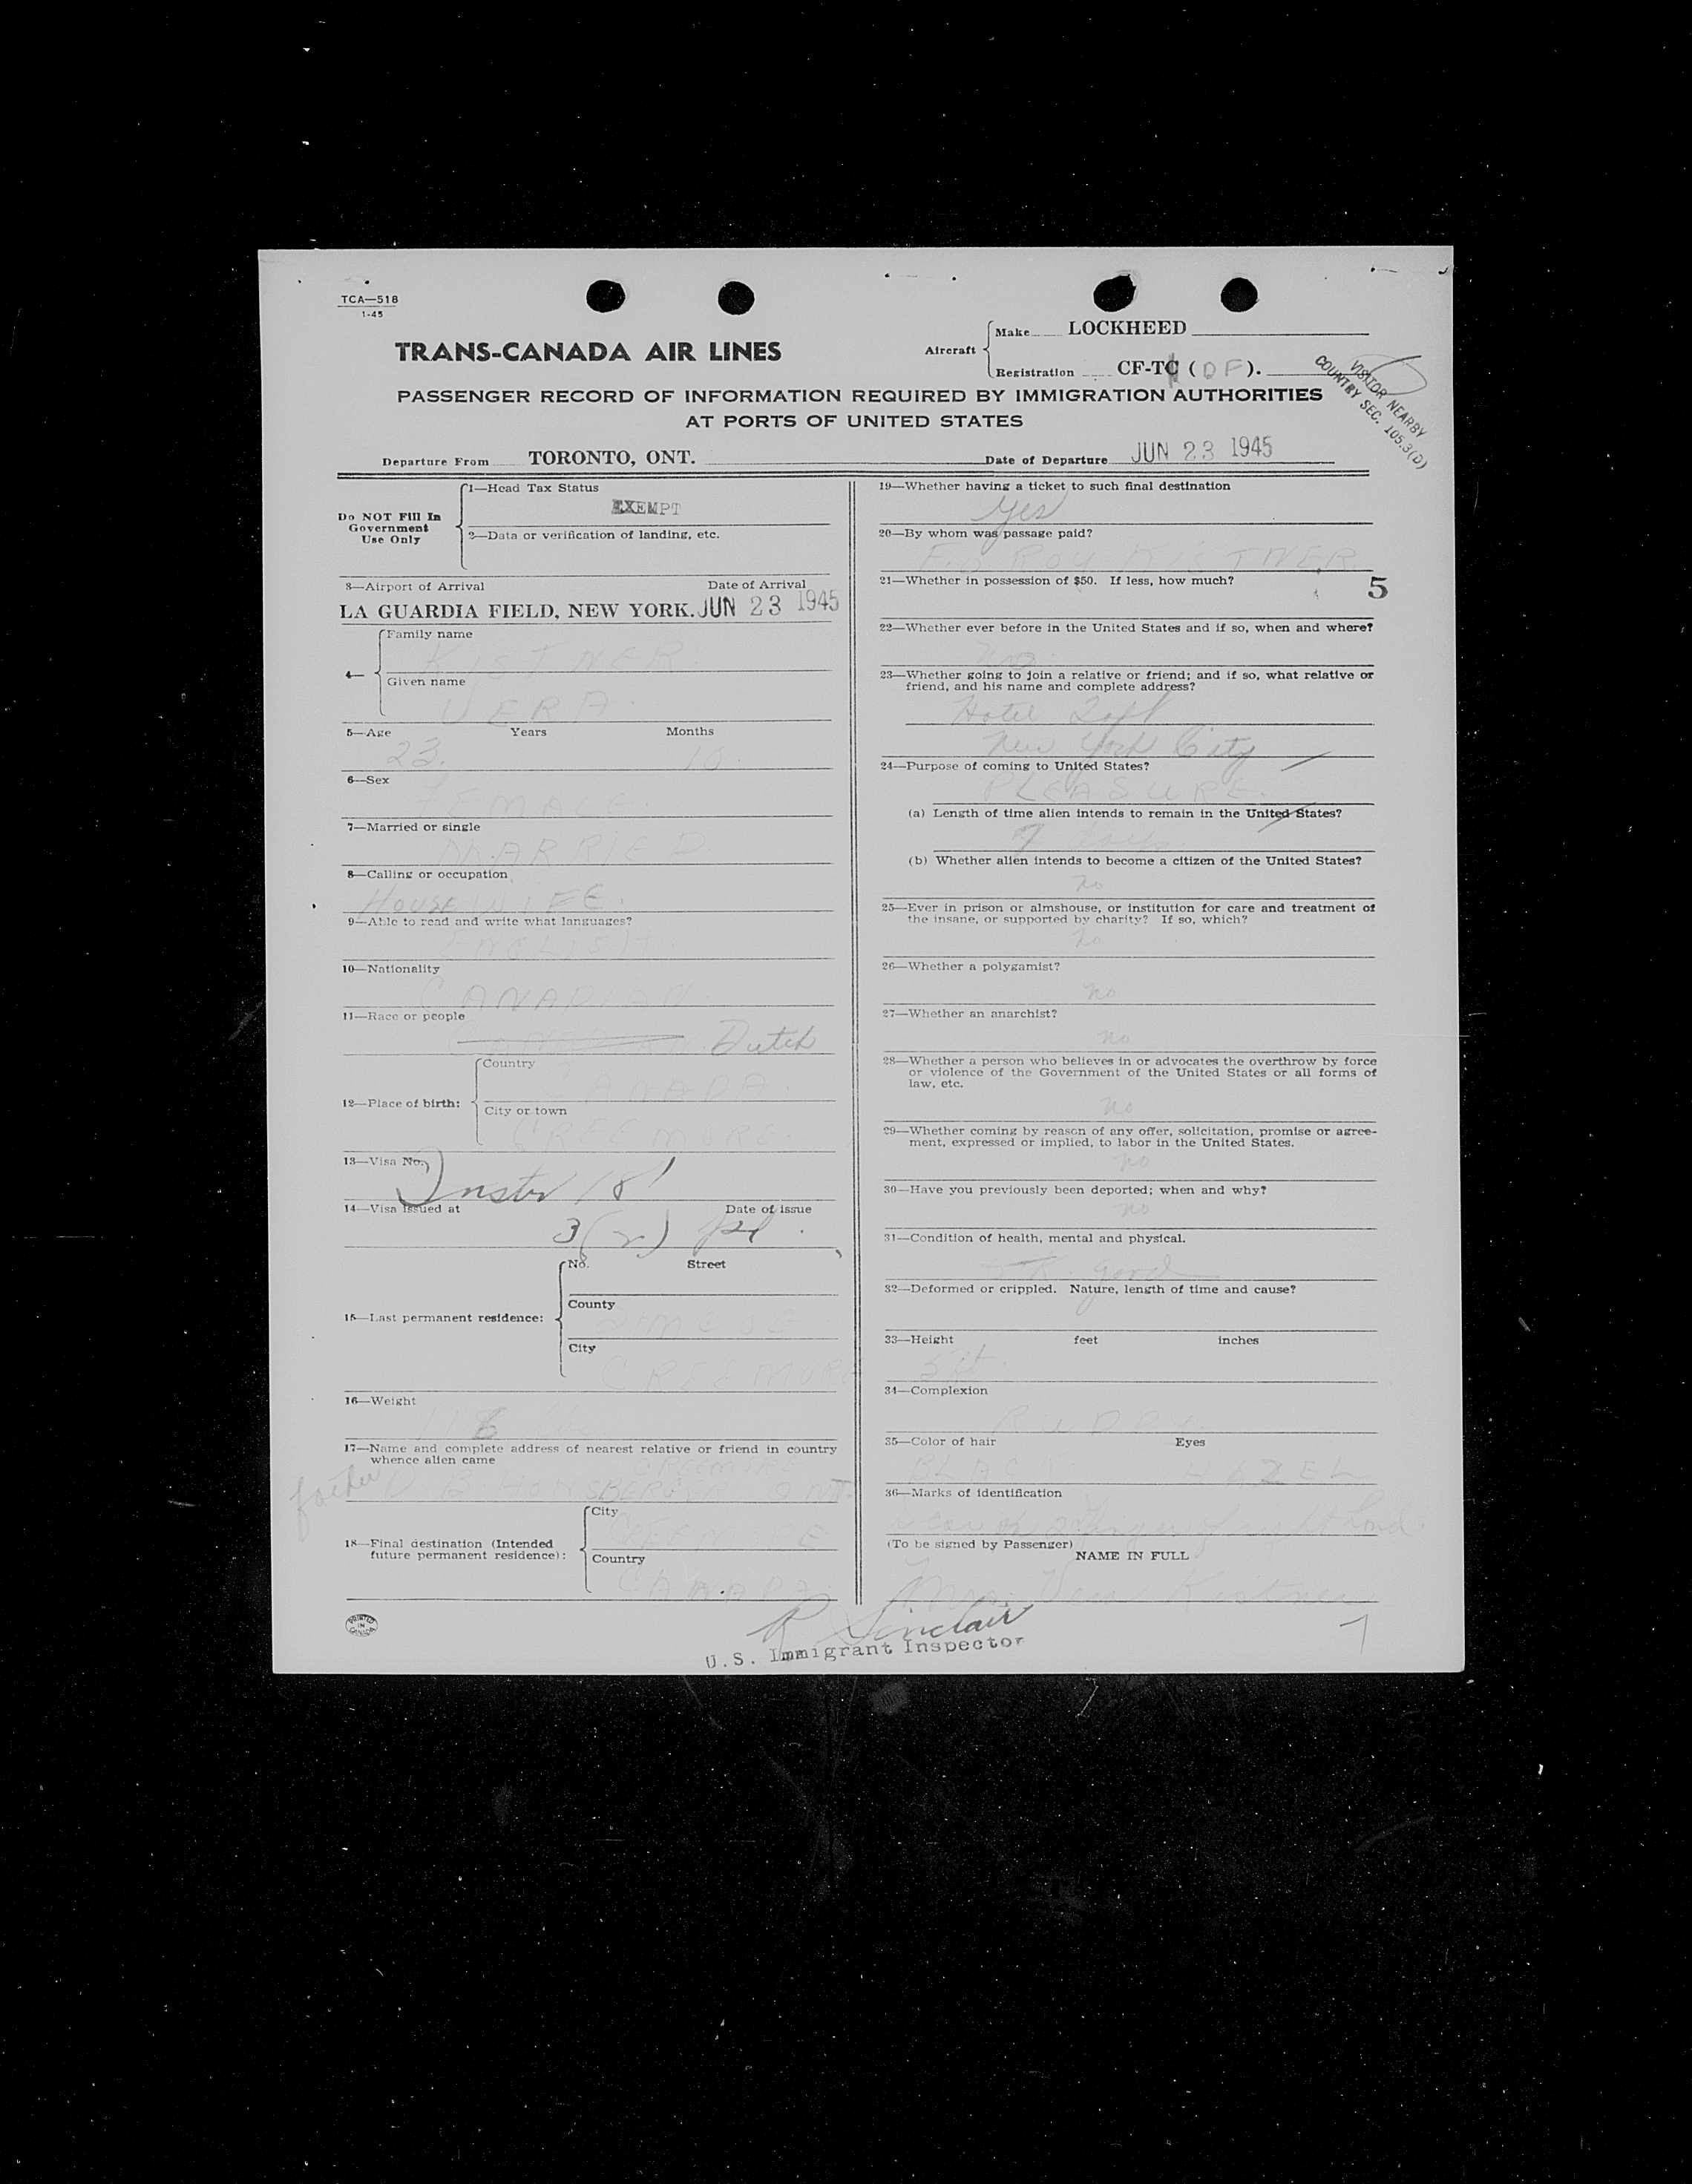 TCA—518
1-45
TRANS-CANADA AIR LINES
Aircraft
Make LOCKHEED
Registration CF-TC ( DF ).
VISITOR NEARBY
COUNTRY SEC. 105.3(D)
PASSENGER RECORD OF INFORMATION REQUIRED BY IMMIGRATION AUTHORITIES
AT PORTS OF UNITED STATES
Departure From TORONTO, ONT. Date of Departure JUN 23 1945
Do NOT Fill In
Government
Use Only
1—Head Tax Status
EXEMPT
2—Data or verification of landing, etc.
3—Airport of Arrival Date of Arrival
LA GUARDIA FIELD, NEW YORK. JUN 23 1945
4—
Family name
KISTNER
Given name
VERA.
5—Age Years Months
23. 10
6—Sex
FEMALE.
7—Married or single
MARRIED
8—Calling or occupation
HOUSEWIFE.
9—Able to read and write what languages?
ENGLISH.
10—Nationality
CANADIAN
11—Race or people
Dutch
12—Place of birth:
Country
CANADA.
City or town
CREEMORE.
13—Visa No.
Instr 18
14—Visa issued at Date of issue
3(2)
15—Last permanent residence:
No. Street
County
SIMCOE
City
CREEMORE
16—Weight
17—Name and complete address of nearest relative or friend in country
whence alien came
CREEMORE
father ONT.
18—Final destination (Intended
future permanent residence):
City
CREEMORE
Country
CANADA
19—Whether having a ticket to such final destination
Yes
20—By whom was passage paid?
ROY KISTNER
21—Whether in possession of $50. If less, how much?
5
22—Whether ever before in the United States and if so, when and where?
No.
23—Whether going to join a relative or friend; and if so, what relative or
friend, and his name and complete address?
Hotel Taft
New York City
24—Purpose of coming to United States?
PLEASURE.
(a) Length of time alien intends to remain in the United States?
7 days
(b) Whether alien intends to become a citizen of the United States?
no
25—Ever in prison or almshouse, or institution for care and treatment of
the insane, or supported by charity? If so, which?
no
26—Whether a polygamist?
no
27—Whether an anarchist?
no
28—Whether a person who believes in or advocates the overthrow by force
or violence of the Government of the United States or all forms of
law, etc.
no
29—Whether coming by reason of any offer, solicitation, promise or agree-
ment, expressed or implied, to labor in the United States.
no
30—Have you previously been deported; when and why?
no
31—Condition of health, mental and physical.
good
32—Deformed or crippled. Nature, length of time and cause?
33—Height feet inches
5 ft
34—Complexion
RUDDY
35—Color of hair Eyes
BLACK HAZEL
36—Marks of identification
(To be signed by Passenger)
NAME IN FULL
Mrs. Vera Kistner
PRINTED IN CANADA
R Sinclair
U.S. Immigrant Inspector
7